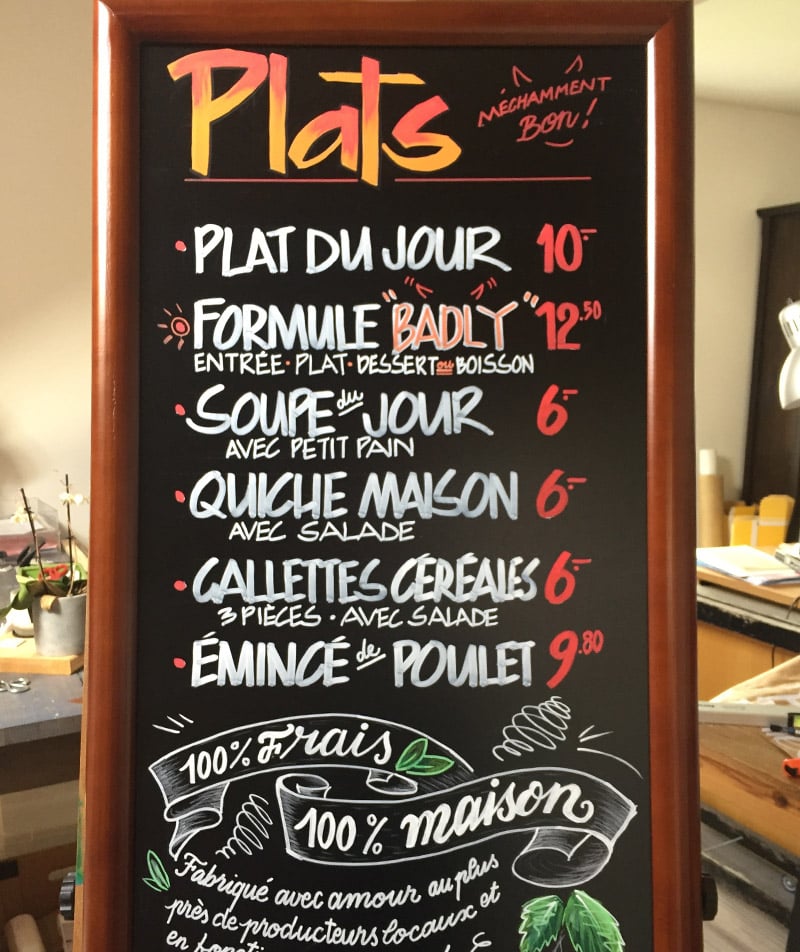 Plats
MÉCHAMMENT
BON!
PLAT DU JOUR 10.-
FORMULE "BADLY" 12.50
ENTRÉE · PLAT · DESSERT ou BOISSON
SOUPE du JOUR 6.-
AVEC PETIT PAIN
QUICHE MAISON 6.-
AVEC SALADE
GALLETTES CÉRÉALES 6.-
3 PIÈCES · AVEC SALADE
ÉMINCÉ de POULET 9.80
100% Frais
100% maison
Fabriqué avec amour au plus
près de producteurs locaux et
en